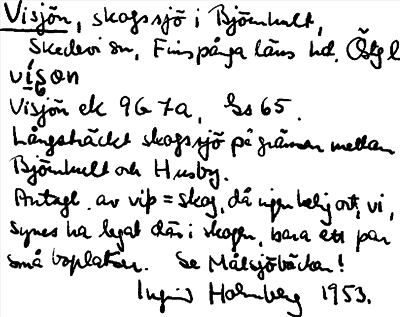 Visjön, skogssjö i Björnhult,
Skedevi sn, Finspånga läns hd. Östg l
vison
Visjön ek 9G 7a, Gs 65.
Långsträckt skogssjö på gränsen mellan
Björnhult och Husby.
Antagl. av vip = skog, då ingen helig ort, vi,
synes ha legat där i skogen, bara ett par
små boplatser. Se Målsjöbäcken!
Ingrid Holmberg 1953.